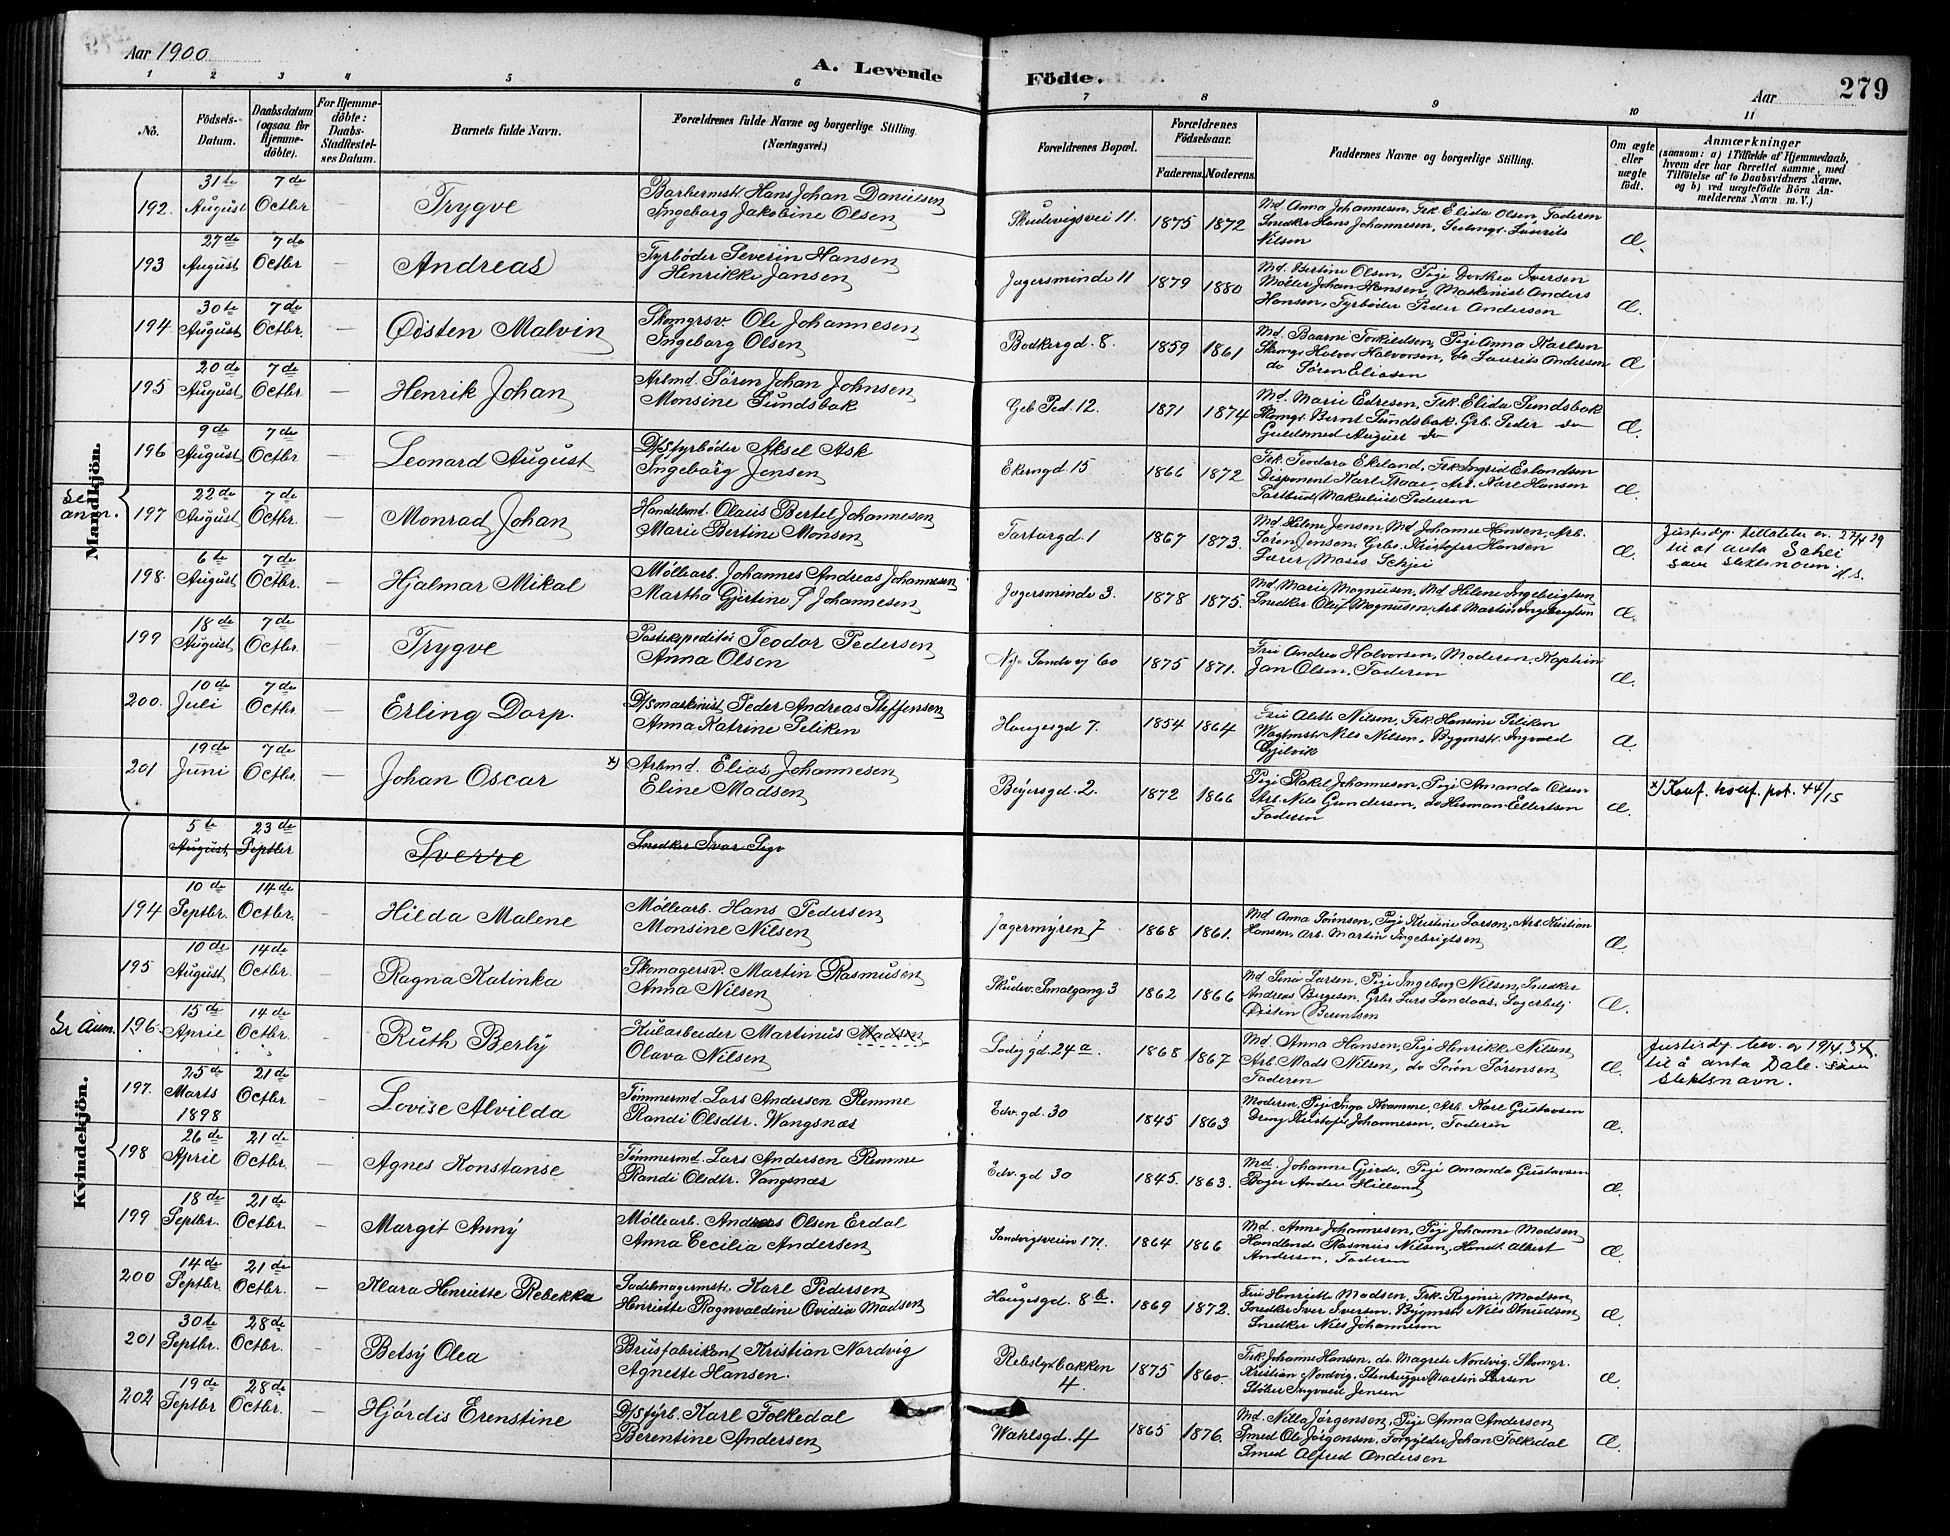 Aar 1900
A. Levende Födte.
Aar
279
1 2 3 4 5 6 7 8 9 10 11
No.
Födsels-Datum.
Daabsdatum (ogsaa for Hjemmedöbte).
For Hjemmedöbte: Daabs-Stadfæstelses Datum.
Barnets fulde Navn.
Forældrenes fulde Navne og borgerlige Stilling. (Næringsvei.)
Forældrenes Bopæl.
Forældrenes Födselsaar.
Faderens. Moderens.
Faddernes Navne og borgerlige Stilling.
Om ægte eller uægte födt.
Anmærkninger (saasom: a) i Tilfælde af Hjemmedaab, hvem der har forrettet samme, med Tilföielse af to Daabsvidners Navne, og b) ved uægtefödte Börn Anmelderens Navn m. V.)
Mandkjön.
192. 31te August 7de Octbr Trygve
Hans Johan Danielsen
Ingeborg Jakobine Olsen
Skudevigsvei 11. 1875 1872
Md Anna Johannesen, Frk. Elida Olsen, Faderen
Snedker Hans Johannesen, Laurits
Nilsen
Æ.
193 27de August 7de Octbr — Andreas
Fyrbøder Severin Hansen
Henrikke Jansen
Jægersminde 11 1879 1880
Md. Bertine Olsen, Pige Dorthea Iversen
Møller Johan Hansen, Maskinist Anders
Hansen, Fyrbøder Peder Andersen
Æ.
194 30te August 7de Octbr. — Øisten Malvin
Skomgrsv. Ole Johannesen
Ingeborg Olsen
Bødkergd. 8. 1859 1861
Md. Torkildsen, Pige Anna Karlsen
Skomgr Halvor Halvorsen, do Laurits Andersen
do Søren Eliasen
Æ
195 20de August 7de Octbr — Henrik Johan
Arbmd. Sören Johan Johnsen
Monsine Sundsbak
Geb. Ped. 12. 1871 1874
Md. Marie Edresen, Frk. Elida Sundsbak
Skomgr. Bernt Sundsbak, Grb. Peder do
Guldsmed August do
Æ.
196 9de August 7de Octbr — Leonard August
D/Sfyrbøder Aksel Ask
Ingeborg Jensen
Ekrengd. 15 1866 1872
Frk. Teodora Ekeland, Frk Ingrid Erlandsen
Disponent Karl Staae, Arb. Karl Hansen
Postbud Pedersen
Æ.
Se anm. 197 22de August 7de Octbr. — Monrad Johan
Handelsmd. Olaüs Bertel Johannesen
Marie Bertine Monsen
Tartargd. 1 1867 1873.
Md. Helene Jensen, Md. Johanne Hansen, Arb.
Sören Jensen, Grbs. Kristofer Hansen
Lærer Moses Schjei
Æ.
Justisdp. tillatelse av 27/4 29
til at anta Schei
som slektsnavn. H.S.
198. 6te August 7de Octbr. — Hjalmar Mikal
Møllearb. Johannes Andreas Johannesen
Martha Gjertine f Johannesen
Jægersminde 3. 1878 1875.
Md. Marie Magnusen, Md Helene Ingebrigtsen
Snedker Oluf Magnusen, Arb. Martin Ingebrigtsen
Æ.
199 18de August 7de Octbr. — Trygve
Postekspeditør Teodor Pedersen
Anna Olsen
Sandvej 60 1875 1871.
Frü Andrea Halvorsen, Moderen, Kaptein
Jan Olsen, Faderen
Æ.
200. 10de Juli 7de Octbr — Erling Dorp.
D/Smaskinist Peder Andreas Steffensen
Anna Katrine Peliken
Haugesgd 7. 1854 1864
Frü Aleth Nilsen, Frk. Hansine Peliken
Wagtmstr Nils Nilsen, Bygmstr. Ingvald
Gjilvik
Æ.
201 19de Juni 7de Octbr. — Johan Oscar
x) Arbmd. Elias Johannesen
Eline Madsen
Böjersgd. 2. 1872 1866
Pige Rakel Johannesen, Pige Amanda Olsen
Arb. Nils Gundersen, do Herman Ellertsen
Faderen
Æ.
x) Konf. 44/15
5te August, 23de Septbr Sverre
Snedker Ivar
Kvindekjön.
194 10de Septbr. 14de Octbr. — Hilda Malene
Møllearb. Hans Pedersen
Monsine Nilsen
Jægermyren 7 1868 1861.
Md Anna Sørensen, Pige Kristine Larsen, Arb. Kristian
Hansen, Arb. Martin Ingebrigtsen
Æ.
195 10de August 14de Octbr. — Ragna Katinka
Skomagersv. Martin Rasmusen
Anna Nilsen
Skudsv. Smalgang 3 1862 1866
Md Larsen, Pige Ingeborg Nilsen, Snedker
Andreas Børgesen, Grbr Lars Sandaas, Lagerbetj
Øisten Berentsen
Æ.
Se Anm. 196. 15de April 14de Octbr. — Ruth Berby
Kularbeider Martinus Madsen
Olava Nilsen
Ladegd. 24a. 1868 1867
Md. Anna Hansen, Pige Henrikke Nilsen,
Arb. Mads Nilsen, do Søren Sørensen
Faderen
Æ.
Justisdp. bev. av 19/4. 34.
til å anta Dale som
slektsnavn.
197. 25de Marts 1898 21de Octbr. — Lovise Alvilda
Tømmermd. Lars Andersen Remme
Randi Olsdtr. Wangsnæs
Edv. gd. 30 1845 1863
Moderen, Pige Inga Kvamme, Arb. Karl Gustavsen
Dreng Kristofer Johannesen, Faderen
Æ.
198 26de April 21de Octbr. — Agnes Konstanse
Tømmermd. Lars Andersen Remme
Randi Olsdtr. Vangsnæs
Edv. gd 30 1845. 1863.
Md. Johanne Gjerde, Pige Amanda Gustavsen
Bager Anders Hilland
Æ.
199 18de Septbr. 21de Octbr. — Margit Anny
Møllearb. Andreas Olsen Erdal
Anna Cecilia Andersen
Sandvigsveien 171. 1864 1866
Md. Anne Johannesen, Pige Johanne Madsen
Handlende Rasmus Nilsen, Handl. Albert
Andersen, Faderen
Æ.
200 14de Septbr. 21de Octbr. — Klara Henriette Rebekka
Sadelmagermstr. Karl Pedersen
Henriette Ragnvaldine Ovidia Madsen
Haugesgd. 8b. 1869 1872.
Frü Henriette Madsen, Frk. Regine Madsen,
Snedker Iver Iversen, Bygmstr. Nils Knudsen
Snedker Nils Johannesen
Æ.
201 30te Septbr. 28de Octbr. — Betsy Olea
Brusfabrikant Kristian Nordvig
Agnette Hansen.
Rebslgrbakken 4. 1875 1860.
Frk. Johanne Hansen, do. Magrete Nordvig, Skomgr.
Kristian Nordvig, Stenhugger Martin Larsen
Støber Ingvald Jensen
Æ.
202 19de Septbr 28de Octbr. — Hjördis Erenstine
D/Sfyrb. Karl Folkedal
Berentine Andersen
Wahlsgd. 4 1865 1876.
Md. Nilla Jørgensen, Pige Anna Andersen,
Smed Ole Jørgensen, Forgylder Johan Folkedal
Smed Alfred Andersen
Æ.